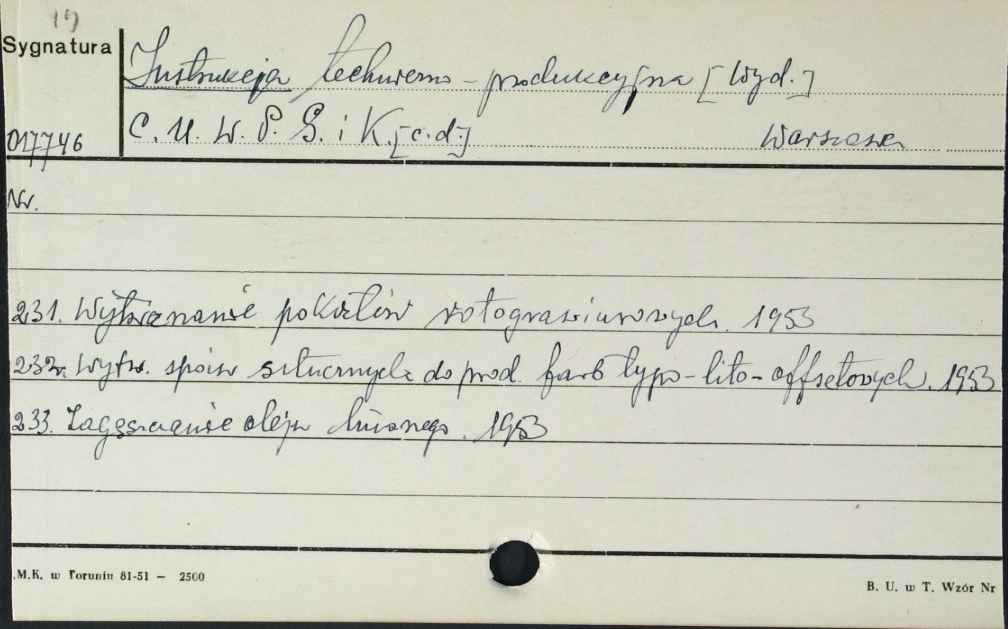 19
Sygnatura
Instrukcja techniczno-produkcyjna [Wyd.]
017746
C. U. W. P. G. i K. [c.d.] Warszawa
Nr.
231. Wytrawianie rotograwiurowych. 1953
232. Wytw. spoiw sztucznych do prod. farb typo-lito-offsetowych. 1953
233. Zagęszczanie oleju lnianego. 1953
.M.K. w Toruniu 81-51 — 2500
B. U. w T. Wzór Nr